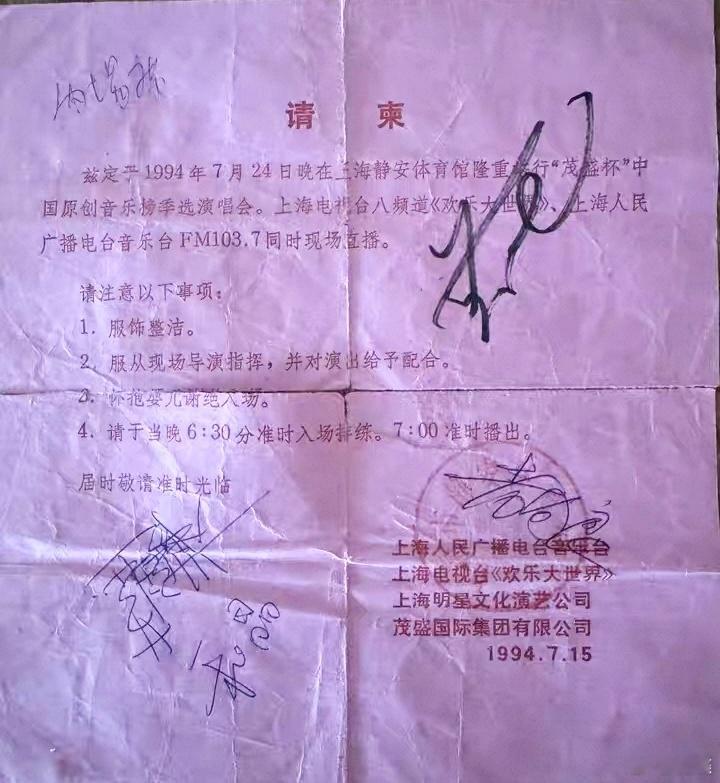 请 柬
兹定于1994年7月24日晚在上海静安体育馆隆重举行“茂盛杯”中
国原创音乐榜季选演唱会。上海电视台八频道《欢乐大世界》、上海人民
广播电台音乐台FM103.7同时现场直播。
请注意以下事项：
1. 服饰整洁。
2. 服从现场导演指挥，并对演出给予配合。
3. 怀抱婴儿谢绝入场。
4. 请于当晚6:30分准时入场排练。7:00准时播出。
届时敬请准时光临
上海人民广播电台音乐台
上海电视台《欢乐大世界》
上海明星文化演艺公司
茂盛国际集团有限公司
1994.7.15